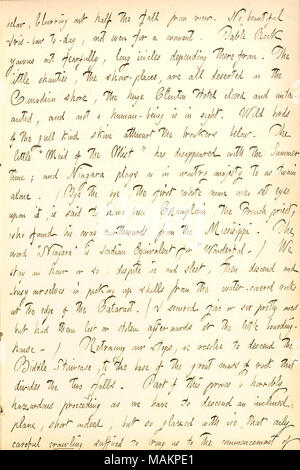 below, blurring out half the Fall from view. No beautiful
Iris-bow to-day, not even for a moment. Table Rock
yawns out fearfully, long icicles depending therefrom. The
little shanties, the show-places, are all deserted on the
Canadian shore, the huge Clifton Hotel closed and untenanted
and not a human-being is in sight. Wild birds
of the gull kind skim athwart the breakers below. The
little "Maid of the Mist" has disappeared with the Summer
time; and Niagara plays in wintry majesty to us twain
alone. / (Bye the bye, the first white man who set eyes
upon it, is said to have been Champlain, the French priest
who found his way northwards from the Mississippi. The
word "Niagara" is Indian equivalent for "Wonderful.") / We
stay an hour or so, despite ice and sleet, then descend and
busy ourselves in picking up shells from the water-covered rocks
at the edge of the Cataract. / (I secured five or six pretty ones
but had them lost or stolen afterwards at the boarding
house.) / Retracing our steps, we resolve to descend the
Biddle Staircase, to the base of the great mass of rock that
divides the two falls. Part of this proves a horribly
hazardous proceeding as we have to descend an inclined
plane, short indeed, but so glazed with ice, that only
careful crawling sufficed to bring us to the commencement of
alamy
Image ID: MAKPE1
www.alamy.com